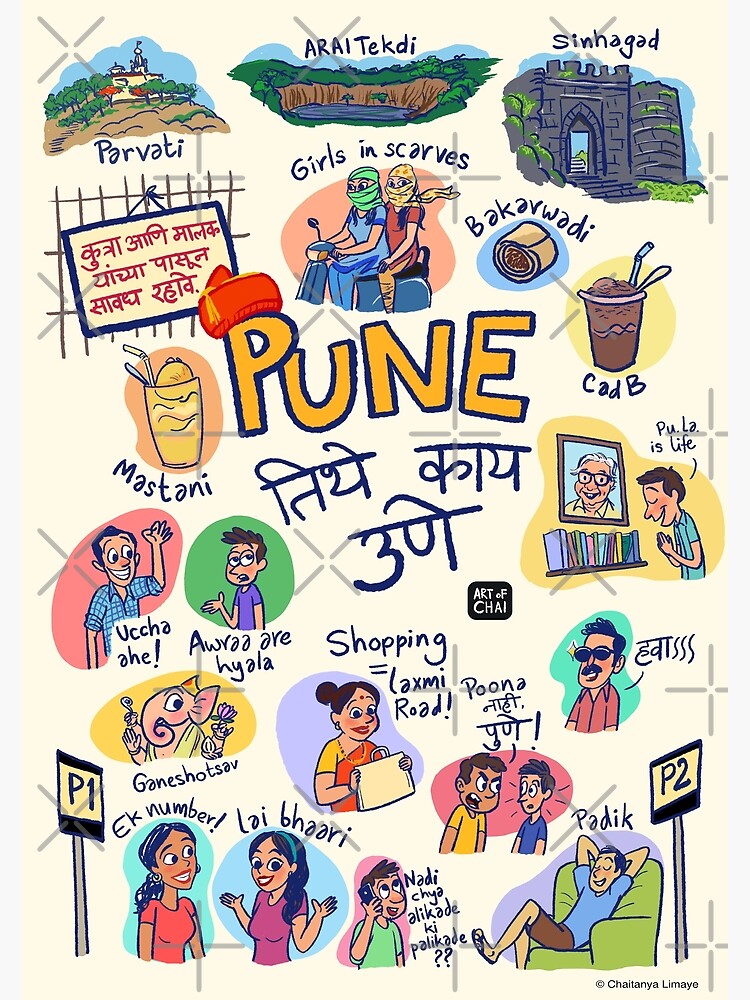 ARAI Tekdi
Sinhagad
Parvati
Girls in scarves
Bakarwadi
कुत्रा आणि मालक
यांच्या पासून
सावध रहावे.
CadB
PUNE
Mastani
तिथे काय
उणे
Pu.La.
is life
ART OF
CHAI
Uccha
ahe!
Awraa are
hyala
Shopping
=
Laxmi
Road!
Poona
नाही,
पुणे!
हवाऽऽऽ
Ganeshotsav
P1
P2
Ek number!
Lai bhaari
Nadi
chya
alikade
ki
palikade
??
Padik
© Chaitanya Limaye